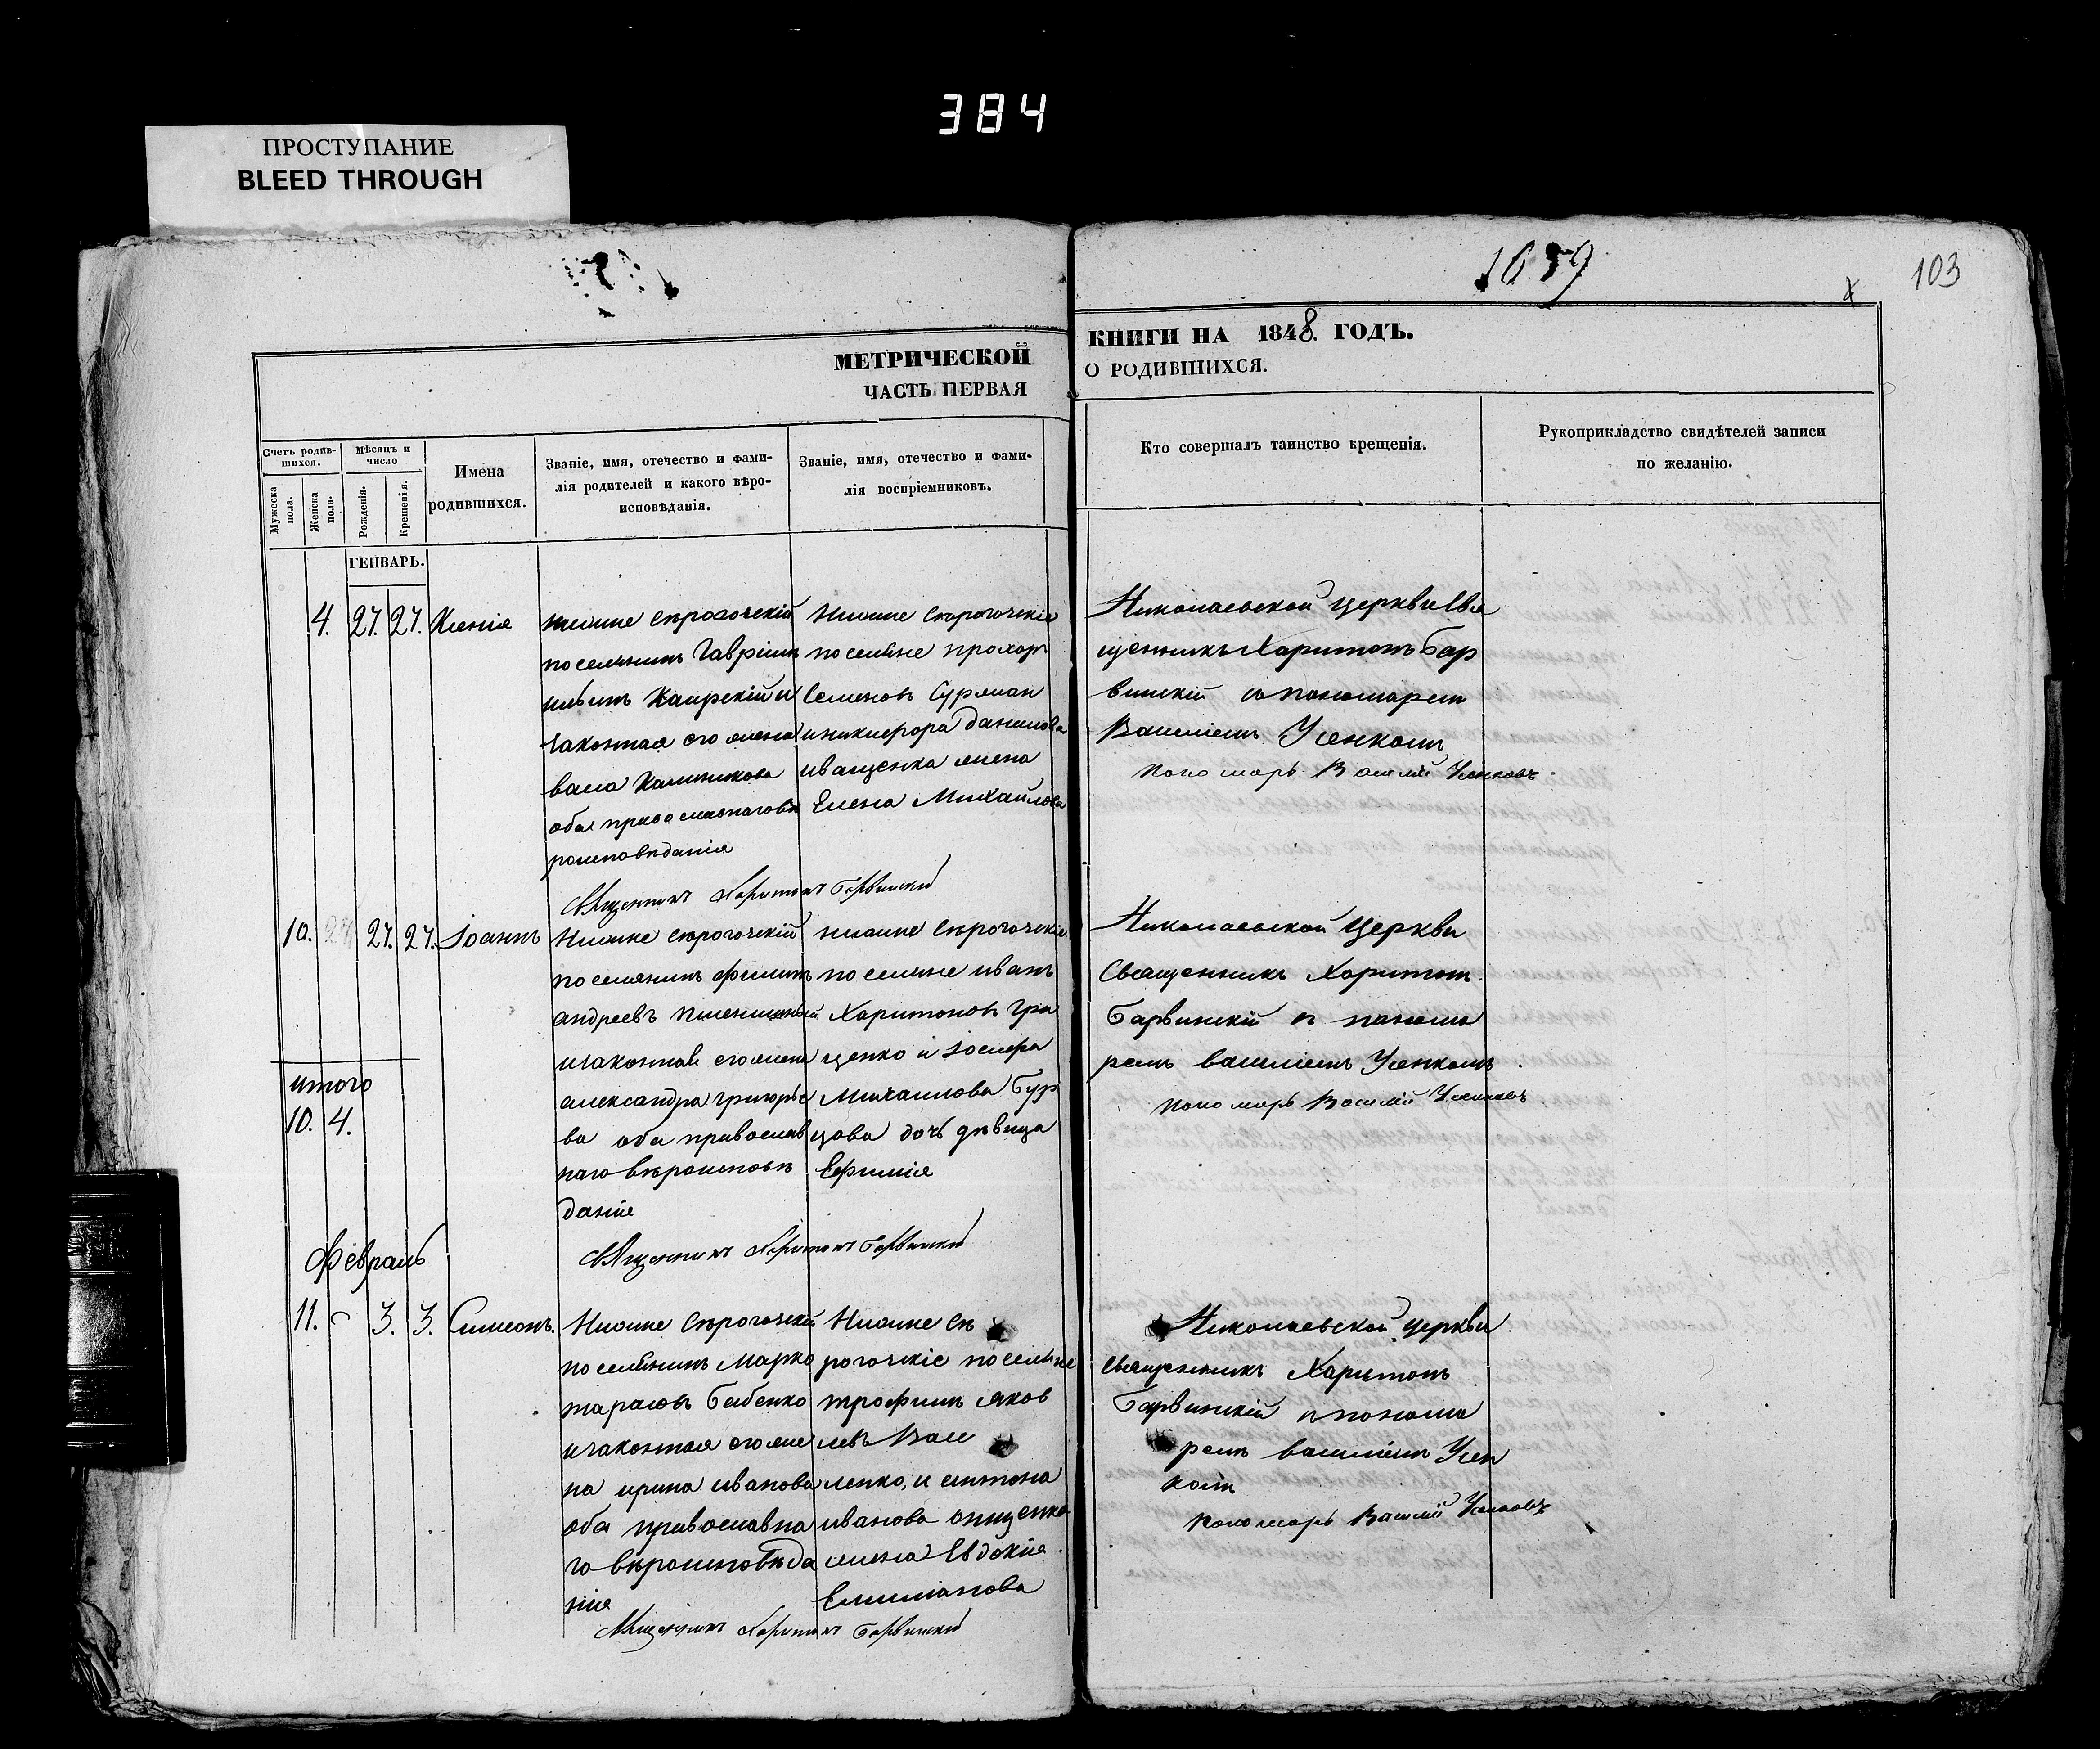 384
ПРОСТУПАНИЕ
BLEED THROUGH
1659
103
МЕТРИЧЕСКОЙ
ЧАСТЬ ПЕРВАЯ
КНИГИ НА 1848. ГОДЪ.
О РОДИВШИХСЯ.
Счетъ родив-
шихся.
Мужеска
пола.
Женска
пола.
Мѣсяцъ и
число
Рожденія.
Крещенія.
Имена
родившихся.
Званіе, имя, отечество и фами-
лія родителей и какого вѣро-
исповѣданія.
Званіе, имя, отечество и фами-
лія воспріемниковъ.
Кто совершалъ таинство крещенія.
Рукоприкладство свидѣтелей записи
по желанію.
ГЕНВАРЬ.
4. 27. 27. Ксенія
поселянинъ Гавріилъ
ильинъ Каирскій и
законная его жена
оба православнаговѣ
роисповѣданія
Священникъ Харитонъ Барвинскій
поселяне прохоръ
Семеновъ Сурман
иникифора данилова
иващенка жена
Елена Михайлова
Николаевской церкви Свя
щенникъ Харитонъ Бар
винскій с пономаремъ
Василіемъ Усенкомъ
Пономарь Василій Усенковъ
10. 27. 27. Іоаннъ
поселянинъ филиппъ
андреевъ Пшенишный
изаконная его жена
александра григорье
ва оба православ
наго вѣроисповѣ
данія
Священникъ Харитонъ Барвинскій
поселяне иванъ
Харитоновъ Гри
ценко и іосифа
Михаилова Бур
цова дочь дѣвица
Ефимія
Николаевской Церкви
Священникъ Харитонъ
Барвинскій съ понома
ремъ василіемъ Усенкомъ
Пономарь Василій Усенковъ
итого
10. 4.
Февраль
11. 3. 3. Симеонъ.
поселянинъ Марко
тарасовъ Бабенко
изаконная его же
на ирина иванова
оба православна
го вѣроисповѣда
нія
Священникъ Харитонъ Барвинскій
рогозскіе поселяне
трофимъ яков
левъ Вас
ленко, и антона
иванова онищенка
жена Евдокія
Емиліанова
Николаевской церкви
священникъ Харитонъ
Барвинскій с понома
ремъ василіемъ Усен
комъ
Пономарь Василій Усенковъ